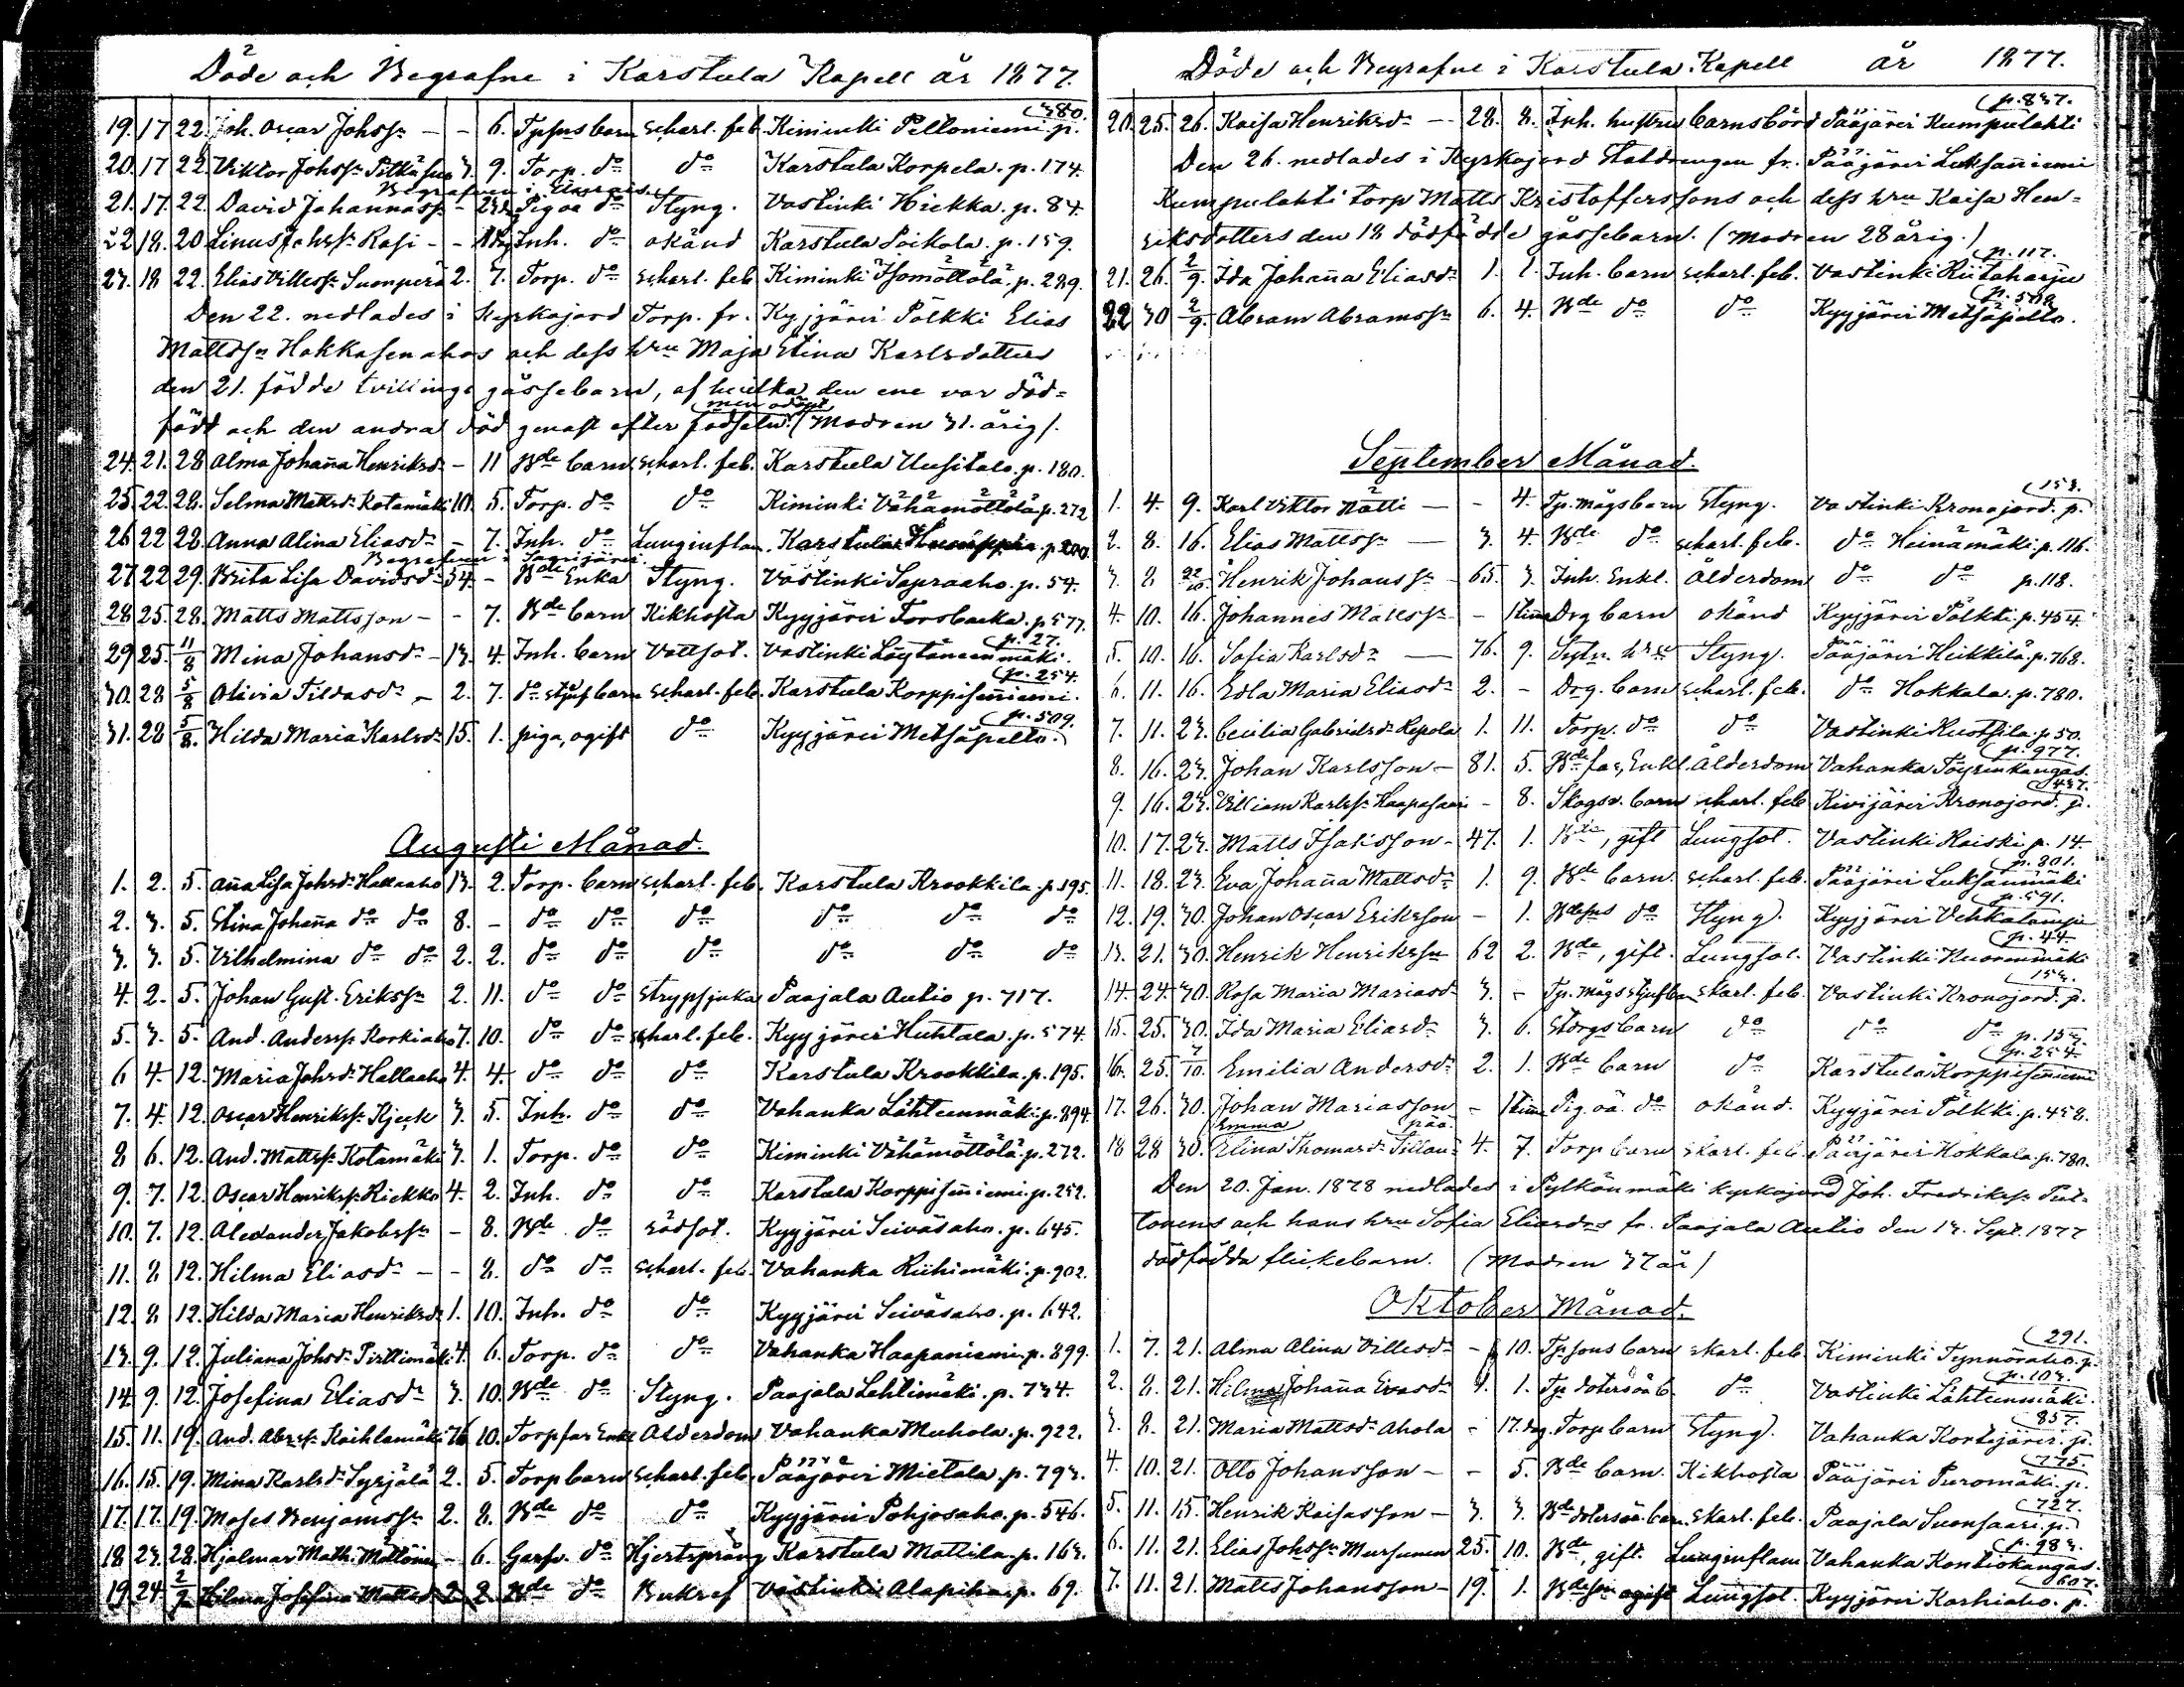 Döde och Begrafne i Karstula Kapell år 1877.
19. 17 22. Joh. Oscar Johss. - - 6. Tpsns barn scharl. feb. Kiminki Peltoniemi p. 380.
20. 17 22. Viktor Johss. Pitkäsu 3. 9. Torp. do do Karstula Korpela. p. 174.
Begrafven i
21. 17. 22. David Johannass. - Pigoä do Styng. Vastinki Hiekka. p. 84.
22 18. 20 Linus Johss. Rasi - - Inh. do okänd Karstula Poikola. p. 159.
23. 18 22. Elias Villess. Sumperä 2. 7. Torp. do scharl. feb. Kiminki Isomöttölä. p. 289.
Den 22. nedlades i kyrkojord Torp. fr. Kyyjärvi Pölkki Elias
Mattss. Hokkasenahos och dess hru Maja Stina Karlsdotters
den 21. födde tvillinge gässebarn, af hvilka den ene var död-
född och den andra död genast efter födseln men odöpt (Modren 31. årig).
24. 21. 28 Alma Johanna Henriksd. - 11 Bde barn scharl. feb. Karstula Uusitalo. p. 180.
25. 22. 28. Selma Mattsd. Kotamäki 10. 5. Torp. do do Kiminki Vähämöttölä p. 272
26 22 28. Anna Alina Eliasd. - 7. Inh. do Lunginflam. Karstula p. 200.
Begrafven i
27 22 29. Brita Lisa Davidsd. 54. - Bde Enka Styng. Vastinki Sapraaho. p. 54.
28 25. 28. Matts Mattsson - - 7. Bde barn Kikhosta Kyyjärvi Forsbacka. p. 577.
29 25. 11/8 Mina Johansd. - 13. 4. Inh. barn Vattsot. Vastinki Löytäneenmäki. p. 27.
30. 28 5/8 Olivia Tildasd. - 2. 7. do stjufbarn scharl. feb. Karstula Korppisenniemi. p. 254.
31. 28 5/8. Hilda Maria Karlsd. 15. 1. piga, ogift do Kyyjärvi Metsäpelto. p. 509.
Augusti Månad.
1. 2. 5. Anna Lisa Johsd. Hallaaho 13. 2. Torp. barn scharl. feb. Karstula Krookkila. p. 195.
2. 3. 5. Stina Johanna do do 8. - do do do do do do
3. 3. 5. Vilhelmina do do 2. 2. do do do do do do
4. 2. 5. Johan Gust. Erikss. 2. 11. do do Strypsjuka Paajala Autio p. 717.
5. 3. 5. And. Anderss. Korkiaho 7. 10. do do scharl. feb. Kyyjärvi Huhtala. p. 574.
6 4. 12. Maria Johsd. Hallaaho 4. 4. do do do Karstula Krookkila. p. 195.
7. 4. 12. Oscar Henrikss. Kjeck 3. 5. Inh. do do Vahanka Lähteenmäki p. 894.
8 6. 12. And. Mattss. Kotamäki 3. 1. Torp. do do Kiminki Vähämöttölä. p. 272.
9. 7. 12. Oscar Henrikss. Riekko 4. 2. Inh. do do Karstula Korppisenniemi. p. 252.
10. 7. 12. Alexander Jakobss. - 8. Bde do rödsot. Kyyjärvi Seiväsaho. p. 645.
11. 8 12. Hilma Eliasd. - - 8. do do scharl. feb. Vahanka Riihimäki. p. 902.
12. 8 12. Hilda Maria Henriksd. 1. 10. Inh. do do Kyyjärvi Seiväsaho. p. 642.
13. 9. 12. Juliana Johsd. Pirttimäki 4. 6. Torp. do do Vahanka Haapaniemi p. 899.
14. 9. 12. Josefina Eliasd. 3. 10. Bde do Styng. Paajala Lehtimäki. p. 734.
15. 11. 19. And. Abrss. Koihlamäki 76 10. Torpfar Enkl Ålderdom Vahanka Muhola. p. 922.
16. 15. 19. Mina Karlsd. Syrjälä 2. 5. Torp barn scharl. feb. Pääjärvi Mietala. p. 793.
17. 17. 19. Moses Benjamss. 2. 8. Bde do do Kyyjärvi Pohjosaho. p. 546.
18 23. 28. Hjalmar Math. Möttönen - 6. Garfv. do Hjertsprång Karstula Mattila. p. 163.
19. 24. 2/9 Hilma Josefina Mattsd. 2. 2. Bde do Bukref Vastinki Alapiha p. 69.
Döde och Begrafne i Karstula Kapell år 1877.
20. 25. 26. Kaisa Henriksd. - 28. 8. Inh. hustru barnsbörd Pääjärvi Kumpulahti p. 837.
Den 26. nedlades i Kyrkojord Statdrengen fr. Pääjärvi Luksanniemi
Kumpulahti torp Matts Kristofferssons och dess hru Kaisa Hen-
riksdotters den 18 dödfödde gässebarn. (Modren 28 årig.)
21. 26. 2/9. Ida Johanna Eliasd. 1. 1. Inh. barn scharl. feb. Vastinki Riitaharju p. 117.
22 30 2/9. Abram Abramss. 6. 4. Bde do do Kyyjärvi Metsäpelto. p. 509
September Månad.
1. 4. 9. Karl Viktor Nätti - - 4. Tp. mågsbarn Styng. Vastinki Kronojord. p. 153.
2. 8. 16. Elias Mattss. - 3. 4. Bde do scharl. feb. do Heinämäki p. 116.
3. 8 22/10. Henrik Johanss. 65. 3. Inh. Enkl. Ålderdom do do p. 118.
4. 10. 16. Johannes Matss. - 1 tim Drg barn okänd Kyyjärvi Pölkki. p. 454.
5. 10. 16. Sofia Karlsd. - 76. 9. Sytn. hru Styng. Pääjärvi Heikkilä. p. 768.
6. 11. 16. Edla Maria Eliasd. 2. - Drg. barn scharl. feb. do Hokkala. p. 780.
7. 11. 23. Cecilia Gabrielsd. Repola 1. 11. Torp. do do Vastinki Kustsila. p. 50.
8. 16. 23. Johan Karlsson - 81. 5. Bde far, Enkl. Ålderdom Vahanka Töyrenkangas. p. 977.
9. 16. 23. Villiam Karlss. Haapasaari - 8. Skogsv. barn scharl. feb Kivijärvi Kronojord. p. 437.
10. 17. 23. Matts Isaksson - 47. 1. Bde, gift Lungsot. Vastinki Raiski p. 14.
11. 18. 23. Eva Johanna Mattsd. 1. 9. Bde barn. scharl. feb. Pääjärvi Luksanmäki p. 801.
12. 19. 30. Johan Oscar Eriksson - 1. Bdesns do Styng. Kyyjärvi Vehkalampi p. 591.
13. 21. 30. Henrik Henrikssn 62 2. Bde, gift. Lungsot. Vastinki Kuorenmäki p. 44.
14. 24. 30. Rosa Maria Mariasd. 3. - Tp. mågs stjufba skarl. feb. Vastinki Kronojord. p. 153.
15. 25. 30. Ida Maria Eliasd. 3. 6. Storgsbarn do do do p. 153.
16. 25. 7/10. Emilia Andersd. 2. 1. Bde barn do Karstula Korppisenniemi p. 254.
17. 26. 30. Johan Mariasson - 1 tim Pig oä. do okänd. Kyyjärvi Pölkki. p. 458.
18 28 30. Emma Elina Thomasd. Tillanpää 4. 7. Torp barn skarl. feb. Pääjärvi Hokkala. p. 780.
Den 20. Jan. 1878 nedlades i Pylkönmäki kyrkojord Joh. Fredrikss. Put-
tonens och hans hru Sofia Eliasdrs fr. Paajala Autio den 13. Sept. 1877
dödfödda flickebarn. (Modren 37 år)
Oktober Månad.
1. 7. 21. Alma Alina Villesd. - 10. Tp. sons barn skarl. feb. Kiminki Tynnöraho. p. 291.
2. 8. 21. Hilma Johanna Evasd. 4. 1. Tp. doters oä b do Vastinki Lähteenmäki. p. 103.
3. 8. 21. Maria Mattsd. Ahola - 17. dag. Torp barn Styng. Vahanka Kortejärvi. p. 857.
4. 10. 21. Otto Johansson - - 5. Bde barn. Kikhosta Pääjärvi Puromäki. p. 775.
5. 11. 15. Henrik Kaisasson - 3. 3. Bde doters oä. barn skarl. feb. Paajala Suonsaari. p. 727.
6. 11. 21. Elias Johss. Mursunen 25. 10. Bde, gift. Lunginflam Vahanka Kontiokangas. p. 983.
7. 11. 21. Matts Johansson - 19. 1. Bdeson ogift Lungsot. Kyyjärvi Karhiaho. p. 607.